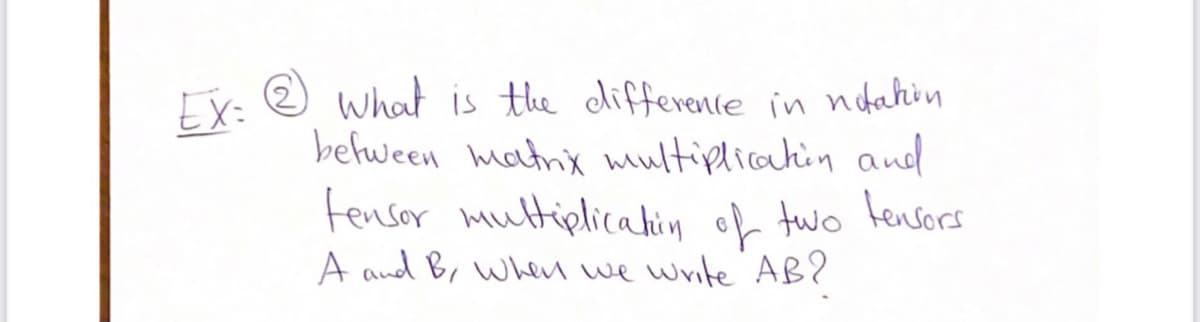 Ex: ② What is the difference in notation
between matrix multiplication and
tensor multiplication of two tensors
A and B, when we write AB?